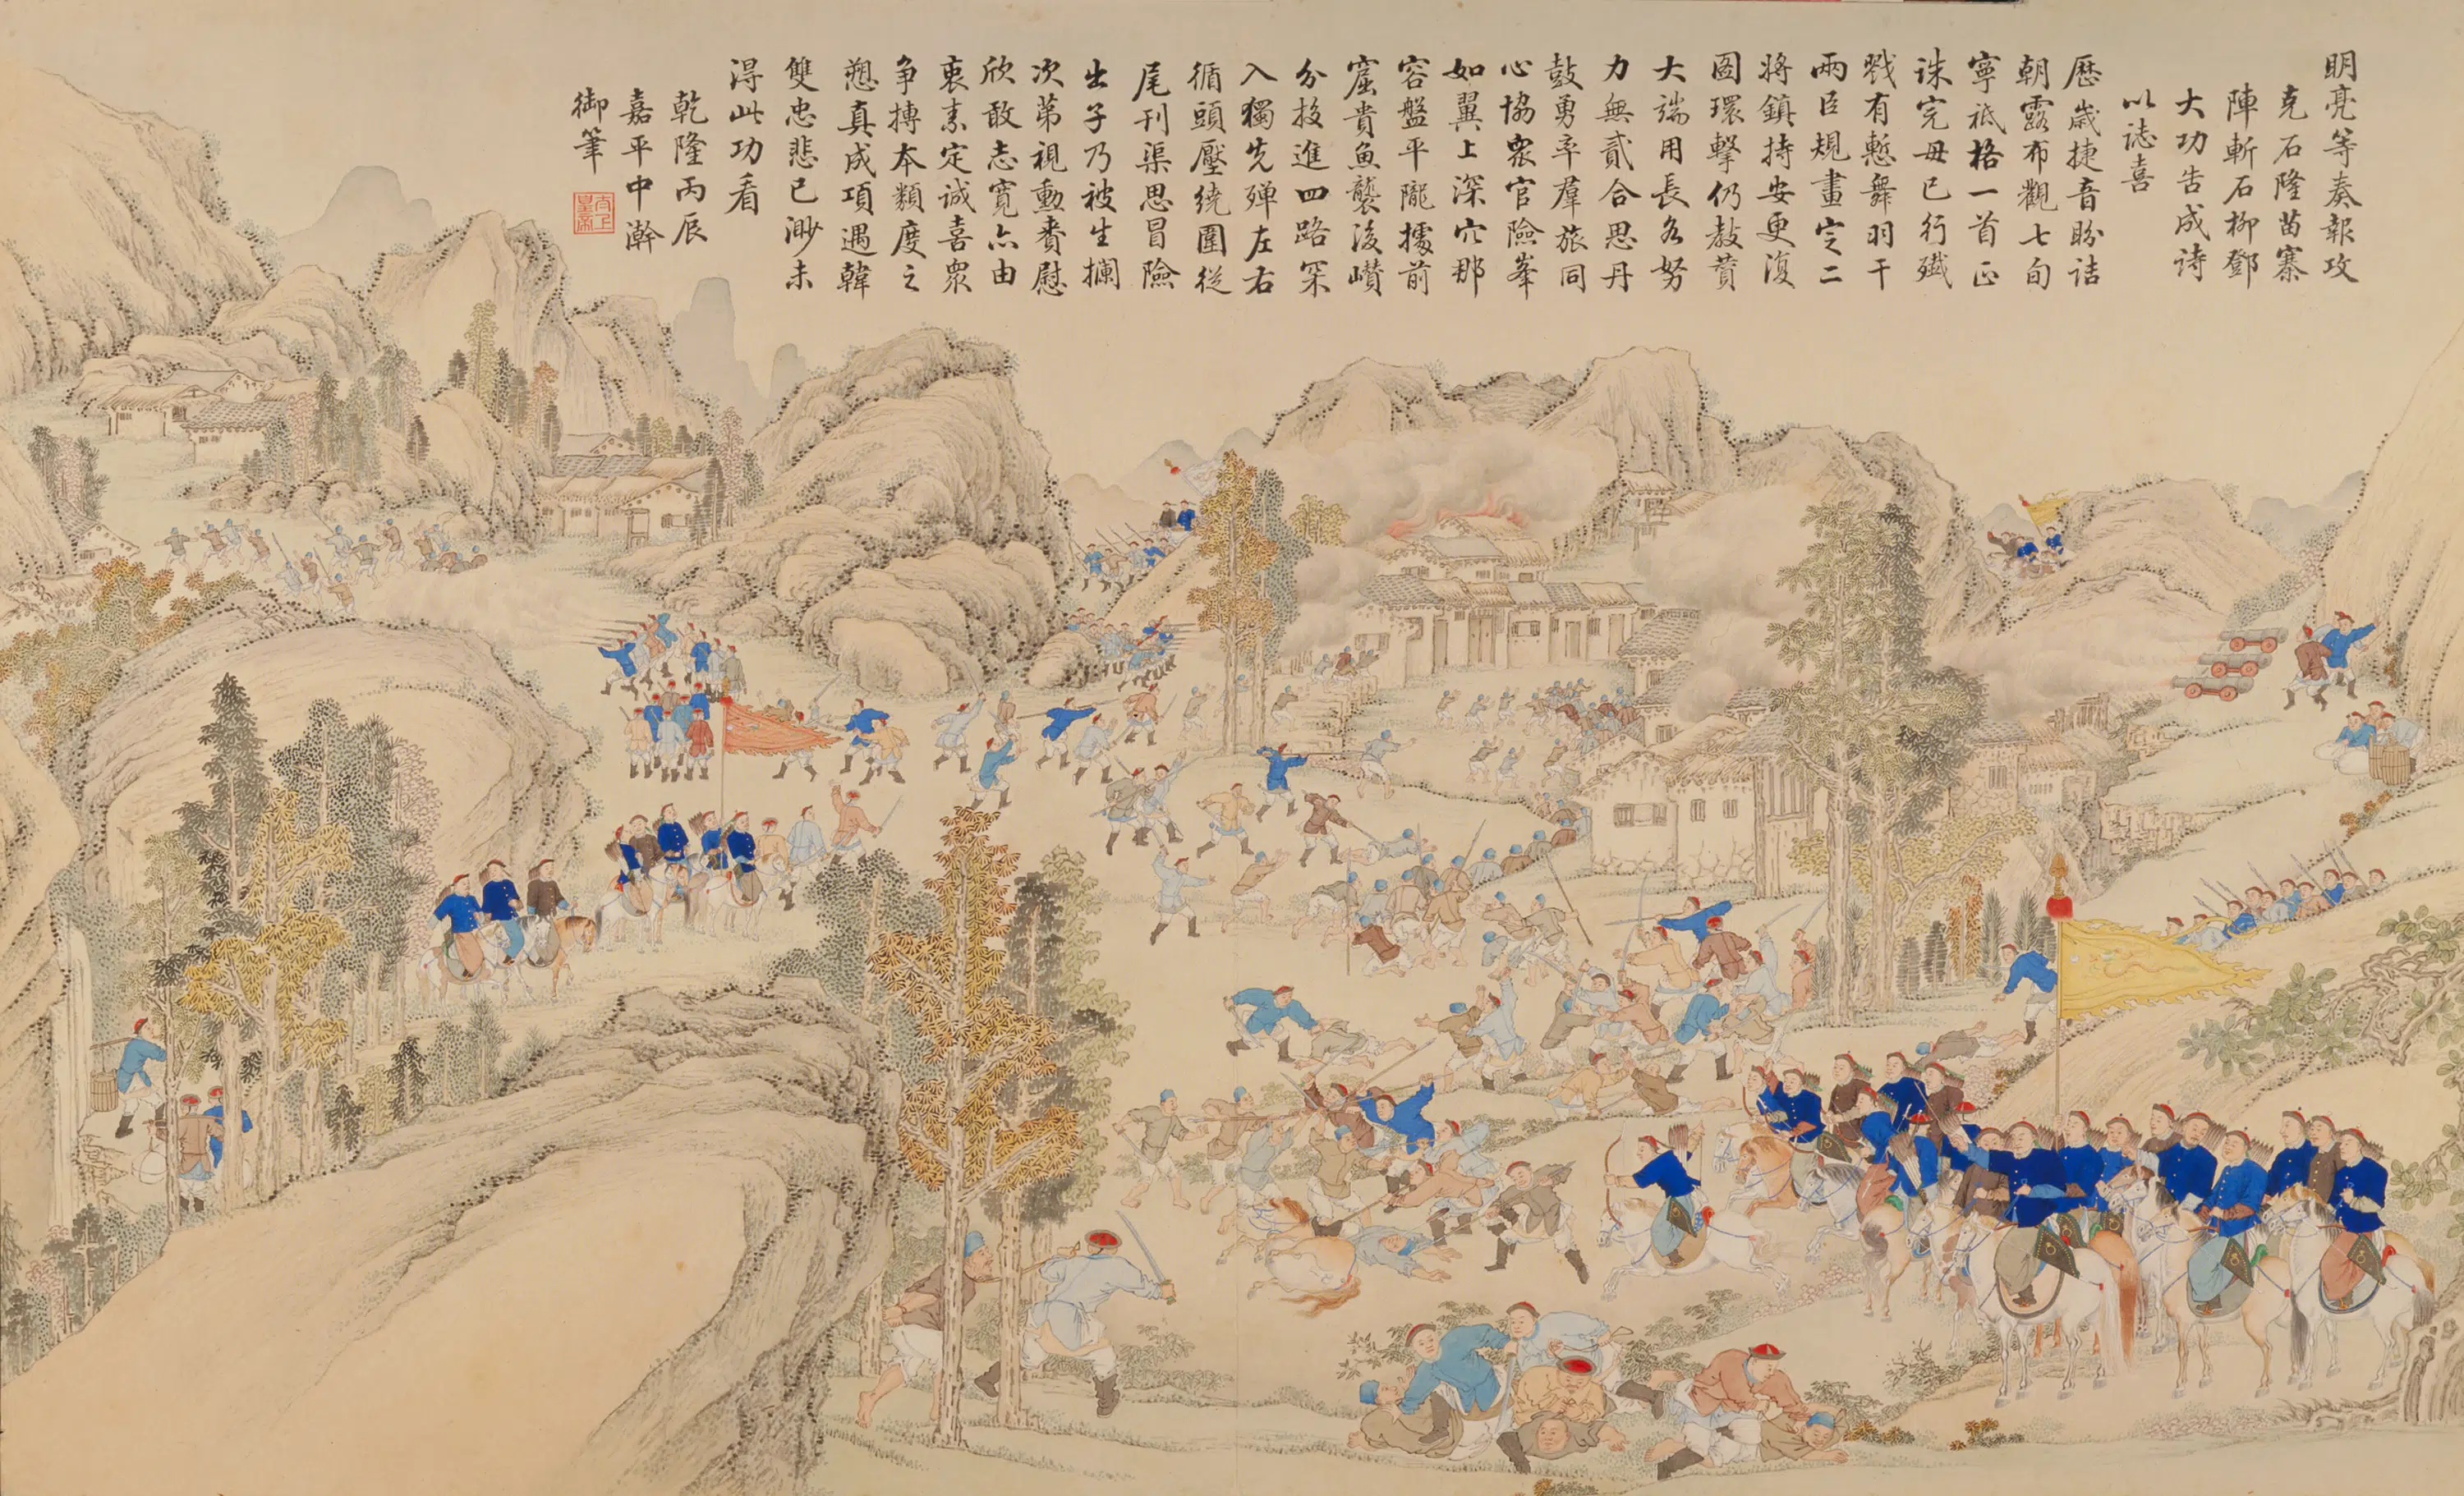 明亮等奏報攻
克石隆苗寨
陣斬石柳鄧
大功告成詩
以誌喜
歷歲捷音盼詰
朝露布觀七旬
寧祗格一首正
誅完毋已行殲
戮有慙舞羽干
兩臣規畫定二
將鎮持安更復
圖環擊仍敖賁
大端用長各努
力無貳合思丹
鼓勇率羣旅同
心協衆官險峯
如翼上深穴那
容盤平隴據前
窟貴魚襲後巑
分投進四路罙
入獨先殫左右
循頭壓繞圍從
尾刊渠思冒險
出子乃被生攔
次第視勳賚慰
欣敢志寬亦由
衷素定誠喜衆
爭摶本類度之
愬真成項遇韓
雙忠悲已渺未
得此功看
乾隆丙辰
嘉平中澣
御筆
太上皇帝